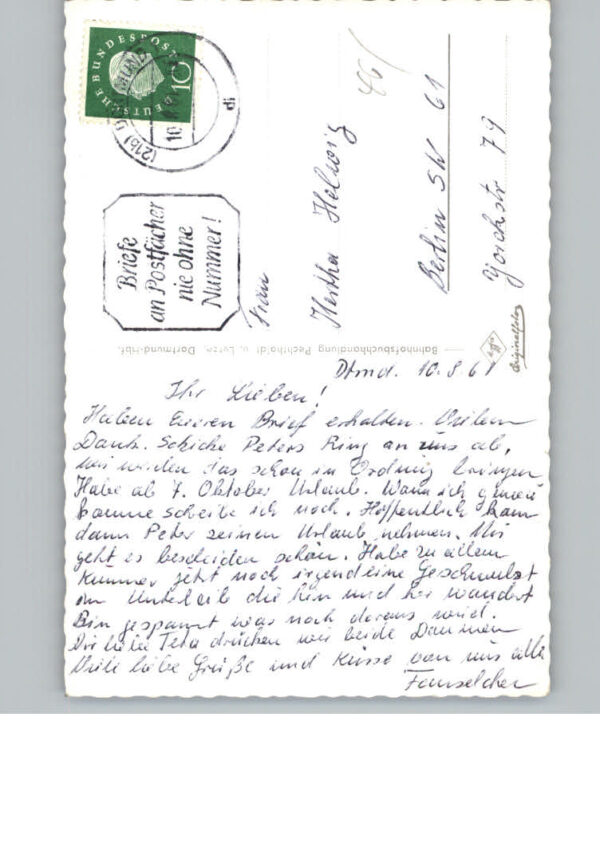 DEUTSCHE BUNDESPOST
10
(21b) DORTMUND
10
di
Briefe
an Postfächer
nie ohne
Nummer!
Frau
Hertha Helwig
Berlin SW 61
Yorckstr 79
Bahnhofsbuchhandlung Dortmund-Hbf.
Agfa
Originalfoto
Dtmd. 10.8 61
Ihr Lieben!
Haben Eueren Brief erhalten. Vielen
Dank. Schicke Peters Ring an uns ab,
wir werden das schon in Ordnung bringen
Habe ab 7. Oktober Urlaub. Wann ich genau
komme schreibe ich noch. Hoffentlich kann
dann Peter seinen Urlaub nehmen. Mir
geht es bescheiden schön. Habe zu allem
Kummer jetzt noch irgendeine Geschwulst
am Unterleib die hin und her wandert
Bin gespannt was noch daraus wird.
Dir liebe drücken wir beide Daumen
Viele liebe Grüße und Küsse von uns alle